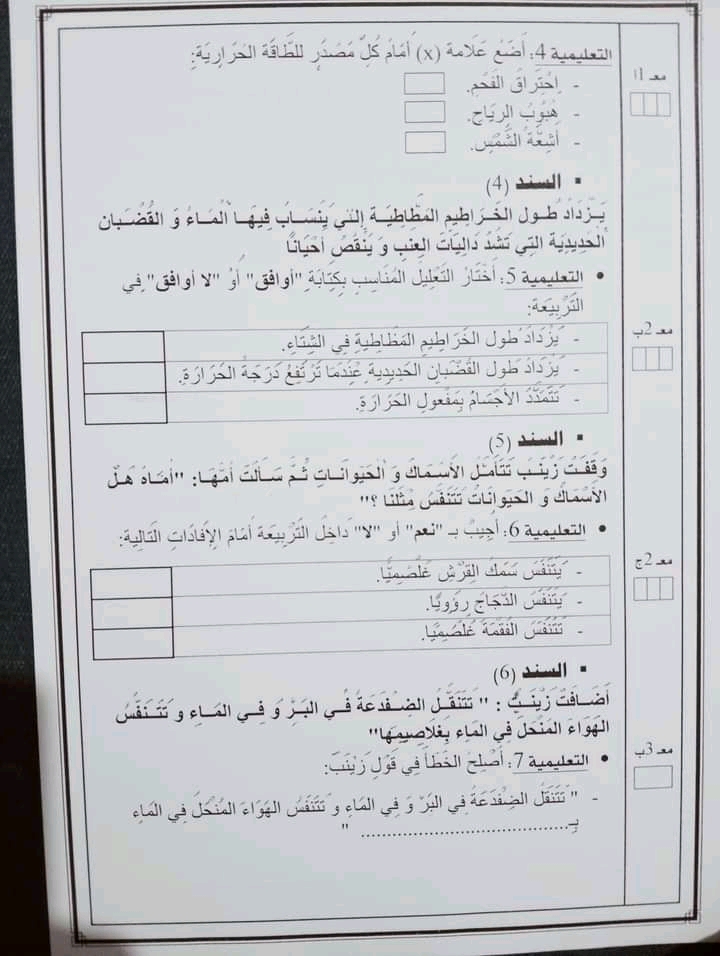 التعليمية 4: أَضَعُ عَلَامة (x) أَمَامَ كُلِّ مَصْدَرٍ للطَّاقَة الحَرَارِيَة:
معـ 1أ
- اِحْتِرَاقُ الفَحْمِ.
- هُبُوبُ الرِيَاحِ.
- أشِعَّةُ الشَّمْسِ.
▪ السند (4)
يَـزْدَادُ طـول الخَـرَاطِيمِ المَطَّاطِيَـة الّتـي يَنْسَـابُ فِيهَـا المَـاءُ وَ القُضْـبان
الحَدِيدِيَة التِي تَشُدُّ دَالِيَاتَ العِنَبِ وَ يَنْقُصُ أَحْيَانًا
• التعليمية 5: أَخْتَارُ التَعْلِيلَ المُنَاسِبَ بِكِتَابَةِ "أوافق" أَوْ "لا أوافق" فِي
التَرْبِيعَة:
معـ 2ب
- يَزْدَادُ طول الخَرَاطِيمِ المَطَّاطِيةِ فِي الشِتَاءِ.
- يَزْدَادُ طُول القُضْبانِ الحَدِيدِيةِ عِنْدَمَا تَرْتَفِعُ دَرَجَةُ الحَرَارَةِ.
- تَتَمَدَّدُ الأَجْسَامُ بِمَفْعولِ الحَرَارَةِ.
▪ السند (5)
وَقَفَتْ زَيْنَب تَتَأَمَّلُ الأَسْمَاكَ وَ الحَيوَانَـاتِ ثُـمَّ سَـأَلَتْ أُمَّهَـا: "أُمَّـاهُ هَـلْ
الأَسْمَاكُ وَ الحيوَانَاتُ تَتَنَفَّسُ مِثْلَنَا ؟"
• التعليمية 6: أُجِيبُ بـ "نعم" أو "لا" دَاخِلَ التَرْبِيعَة أَمَامَ الإِفَادَاتِ التَالِية:
معـ 2ج
- يَتَنَفَّسُ سَمَكُ القِرْشِ غَلْصَمِيًّا.
- يَتَنَفَّسُ الدَّجَاجَ رِئَوِيًا.
- تَتَنَفَّسُ الفُقْمَةُ غَلْصَمِيًا.
▪ السند (6)
أَضَـافَتْ زَيْنَـبُ : " تَتَنَقَّـلُ الضِـفْدَعَةُ فِـي البَـرِّ وَ فِـي المَـاءِ وَ تَتَـنَفَّسُ
الهَوَاءَ المُنْحَلَّ فِي المَاءِ بِغَلاصِيمِهَا"
• التعليمية 7: أُصْلِحُ الخَطَأَ فِي قَوْلِ زَيْنَبَ:
معـ 3ب
- "تَتَنَقَّلُ الضِفْدَعَةُ فِي البَرِّ وَ فِي المَاءِ وَ تَتَنَفَّسُ الهَوَاءَ المُنْحَلَّ فِي المَاءِ
بِـ........................................ "